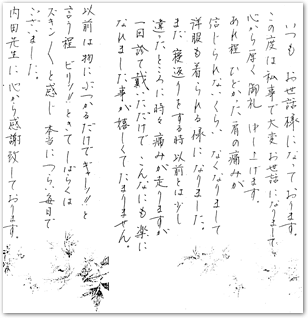 いつもお世話様になっております。
この度は私事で大変お世話になりまして
心から厚く御礼申し上げます。
あれ程ひどかった肩の痛みが
信じられないくらいなくなりまして
洋服も着られる様になりました。
まだ寝返りをする時以前とは少し
違ったところに時々痛みが走りますが
一回診て戴いただけでこんなにも楽に
なれました事が嬉しくてたまりません。
以前は物にぶつかるだけでギャー!!と
言う程ビリッ!!ときてしばらくは
ズキンズキンと感じ本当につらい毎日で
ございました。
内田先生に心から感謝致しております。